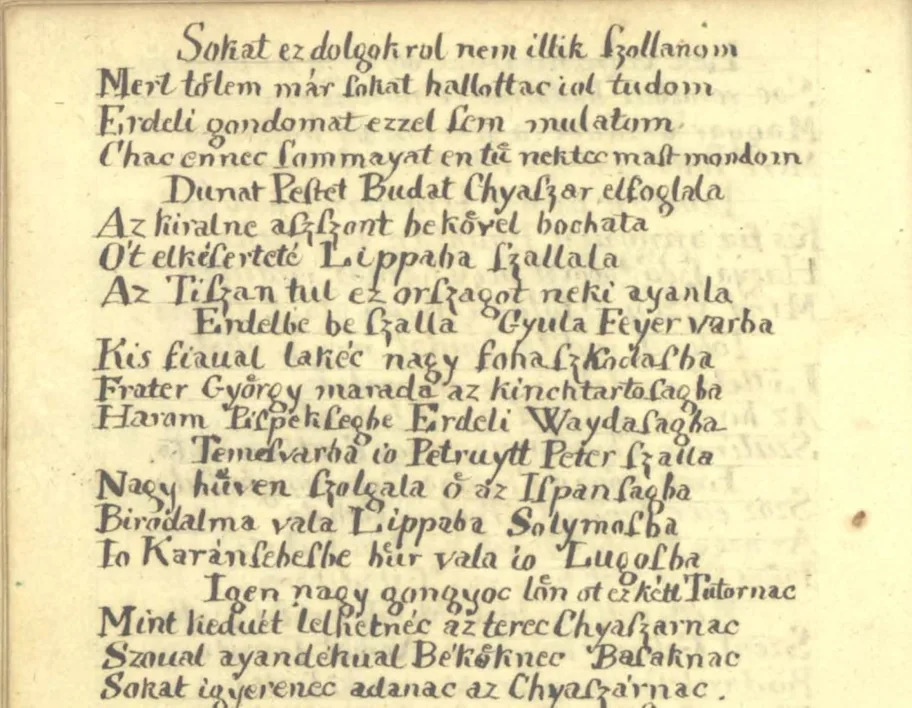 Sokat ez dolgokrol nem illik ſzollanom
Mert tỏlem már ſokat hallottac iol tudom
Erdeli gondomat ezzel ſem mulatom
Chac ennec ſommayat en tű nektec maſt mondom
Dunat Peſtet Budat Chyaſzar elfoglala
Az kiralne aſzſzont bekỏvel bochata
Ót elkéſerteté Lippaba ſzallala
Az Tiſzan tul ez orſzagot neki ayanla
Erdelbe be ſzalla Gyula Feyer varba
Kis fiaual lakéc nagy fohaſzkodaſba
Frater Gyỏrgy marada az kinchtartoſagba
Harom Piſpekſegbe Erdeli Waydaſagba
Temeſvarba io Petruytt Peter ſzalla
Nagy hűven ſzolgala ỏ az Iſpanſagba
Birodalma vala Lippaba Solymoſba
Io Karánſebeſbe hűr vala io Lugoſba
Igen nagy gongyoc lỏn ot ez kétt Tutornac
Mint keduét lelhetnéc az terec Chyaſzarnac
Szoual ayandékual Békỏknec Baſaknac
Sokat igyerenec adanac az Chyaſzárnac .